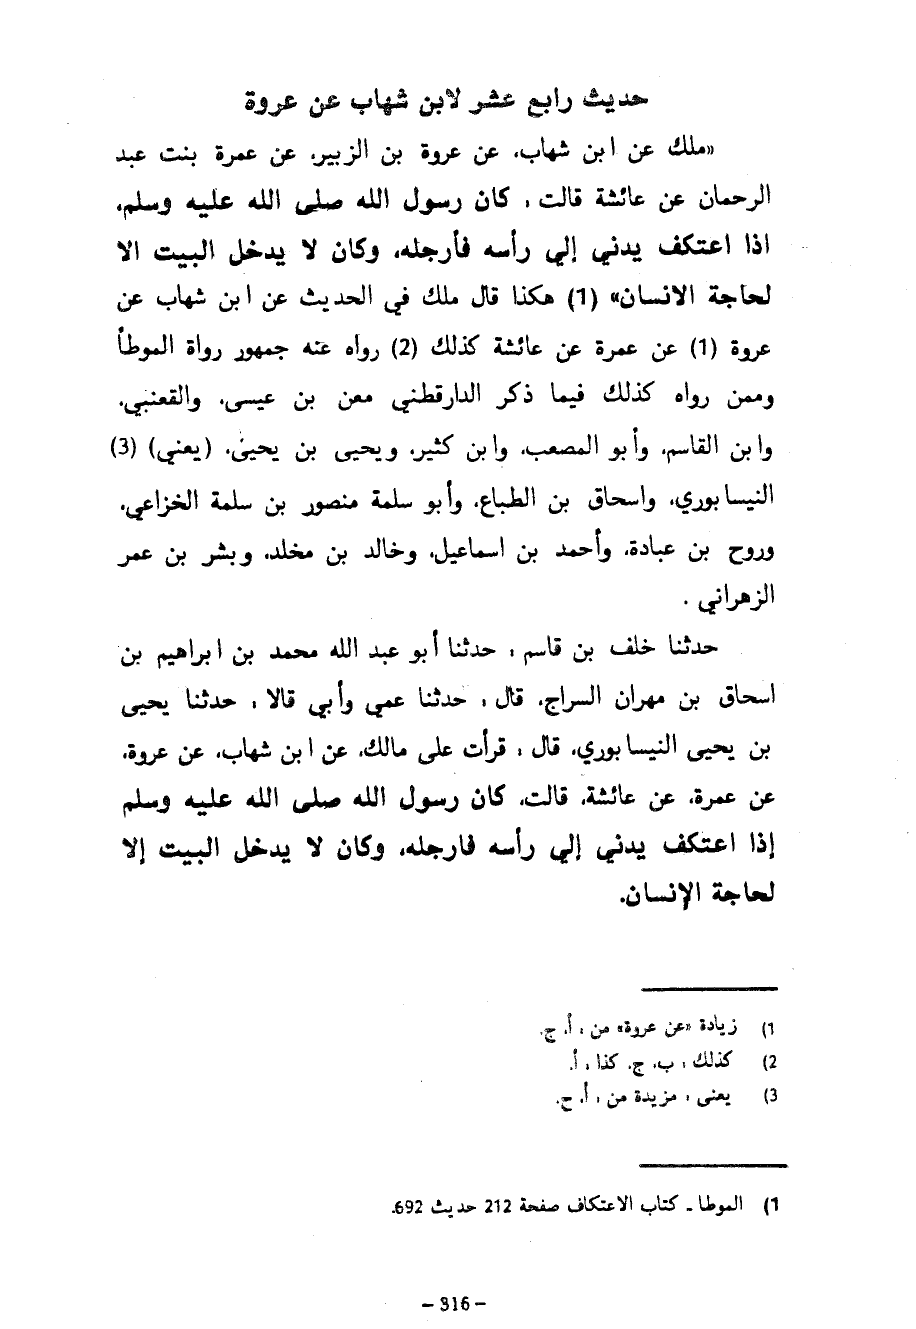 حديث رابع عشر لابن شهاب عن عروة
«ملك عن ابن شهاب، عن عروة بن الزبير، عن عمرة بنت عبد
الرحمان عن عائشة قالت : كان رسول الله صلى الله عليه وسلم،
اذا اعتكف يدني إلي رأسه فأرجله، وكان لا يدخل البيت الا
لحاجة الانسان» (1) هكذا قال ملك في الحديث عن ابن شهاب عن
عروة (1) عن عمرة عن عائشة كذلك (2) رواه عنه جمهور رواة الموطأ
وممن رواه كذلك فيما ذكر الدارقطني معن بن عيسى، والقعنبي،
وابن القاسم، وأبو المصعب، وابن كثير، ويحيى بن يحيى، (يعني) (3)
النيسابوري، واسحاق بن الطباع، وأبو سلمة منصور بن سلمة الخزاعي،
وروح بن عبادة، وأحمد بن اسماعيل، وخالد بن مخلد، وبشر بن عمر
الزهراني .
حدثنا خلف بن قاسم : حدثنا أبو عبد الله محمد بن ابراهيم بن
اسحاق بن مهران السراج، قال : حدثنا عمي وأبي قالا : حدثنا يحيى
بن يحيى النيسابوري، قال : قرأت على مالك، عن ابن شهاب، عن عروة،
عن عمرة، عن عائشة، قالت، كان رسول الله صلى الله عليه وسلم
إذا اعتكف يدني إلي رأسه فارجله، وكان لا يدخل البيت إلا
لحاجة الإنسان.
1) زيادة «عن عروة» من : أ، ج.
2) كذلك : ب، ج، كذا : أ.
3) يعنى : مزيدة من : أ، ج.
1) الموطا ـ كتاب الاعتكاف صفحة 212 حديث 692.
– 316 –